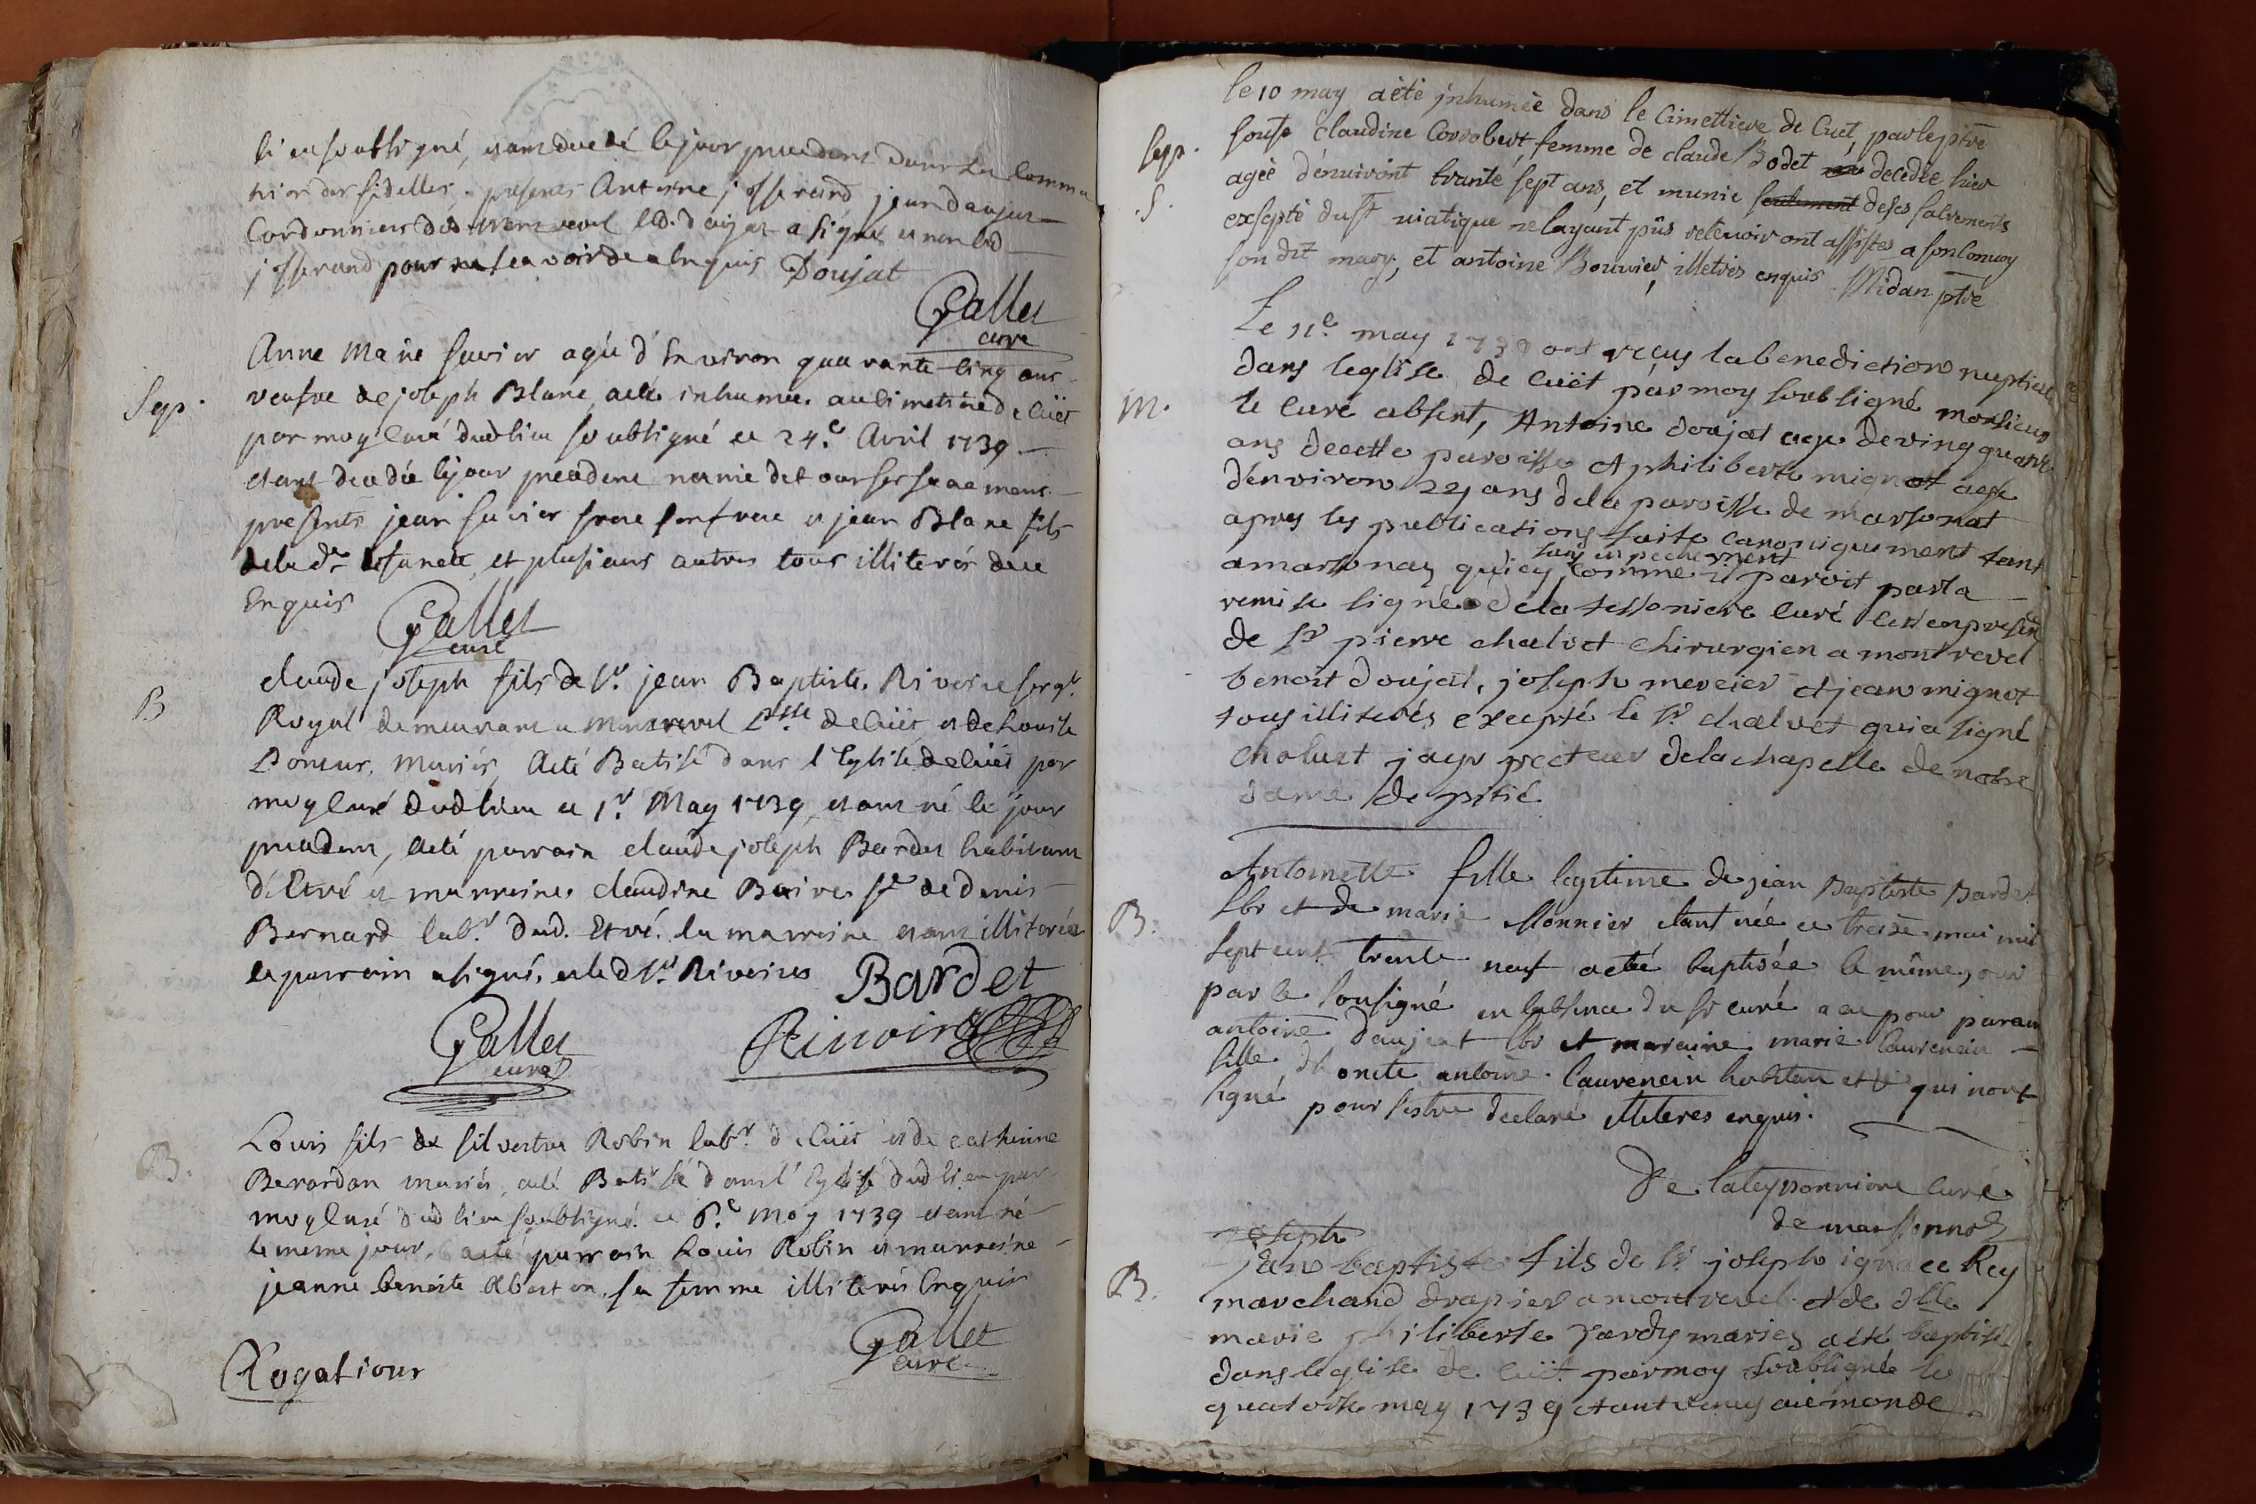 lieu soubsigné, etant decedé le jour precedent dans la commu
nion des fidelles, presents Antoine josserand jean doujat
Cordonniers dud. montrevel led. doujat a signé et non led
josserand pour ne scavoir de ce enquis Doujat
Gallet
curé
Sep.
Anne Marie savier agée d'Environ quarante cinq ans
veufve de joseph Blanc, a eté inhumée au cimetiere de Cüet
par moy Curé dudlieu soubsigné ce 24.e Avril 1739
etant decedée le jour precedent munie de tous ses sacremens
presents jean savier son frere et jean Blanc fils
de la d.e defuncte, et plusieurs autres tous illiterés de ce
Enquis
Gallet
curé
B
claude joseph fils de Sr. jean Baptiste Rivoire sergt.
Royal demeurant a Montrevel psse de Cüet et de Louise
Poncet, mariés, a eté Batisé dans l'Eglise de Cüet par
moy Curé dudlieu ce 1r. May 1739, etant né le jour
precedent, a eté parrain claude joseph Bardet habitant
d'Etré et marreine claudine fe de denis
Bernard labr. dud. Etré. la marreine etant illiterée
le parrain a signé, et led Sr. Rivoires Bardet
Gallet
curé
Rivoire
B.
Louis fils de silvestre Robin labr. de Cüet et de catherine
Berardan mariés, a eté Batisé dans l'Eglise dudlieu par
moy Curé dudlieu soubsigné ce 6.e May 1739 etant né
le meme jour, a eté parrain Louis Robin et marreine
jeanne benoite sa femme illiterés Enquis
Gallet
curé
Rogations
le 10 may a été jnhumée dans le Cimettiere de Cuet, par le ptre
Sep.
sousé claudine Corrobert femme de claude Bodet decedée hier
S.
agée d'enuiront trante sept ans, et munie seulement de ses sacrements
exsepté du st uiatique ne layant pûs reteuoir ont assistes a son conuoy
son dit mary, et antoine Bouuier, illetrés enquis Midan ptre
Le 11.e may 1739 ont reçus la benediction nuptiale
M.
dans leglise de Cüet par moy soubsigné monsieur
le Curé absent, Antoine doujat agé de ving quatre
ans de cette paroisse et philiberte mignot agée
denviron 22 ans de la paroisse de marsonat
apres les publications faite canoniquement tant
sans enpechement
a marsonay quicy, comme il paroit par la
remise signée de la tessoniere Curé cest en presence
de Sr pierre chalvet chirurgien a montrevel
benoit doujat, joseph mercier et jean mignot
tous illiterés excepté le sr. chalvet qui a signé
chaluet jayr recteur de la chapelle de notre
dame de pitié
B.
Antoinette fille legitime de jean Baptiste Bardet
lbr et de marie Monnier etant née ce treize mai mil
sept cent trente neuf a eté baptisée le même jour
par le sousigné en labsence du sr curé a eu pour parain
antoine doujat lbr et maraine marie laurencin
fille dhonete antoine laurencin habitan qui nont
signé pour sestre declaré illiteres enquis.
De lateyssonniere curé
de marsonnas
joseph
B.
jean baptiste fils de Sr joseph ignace Rey
marchand drapier a montrevel et de dlle
marie philiberte yardy mariez a eté baptisé
dans leglise de Cüet par moy soubsigné le
quatorse may 1739 etant venus au monde